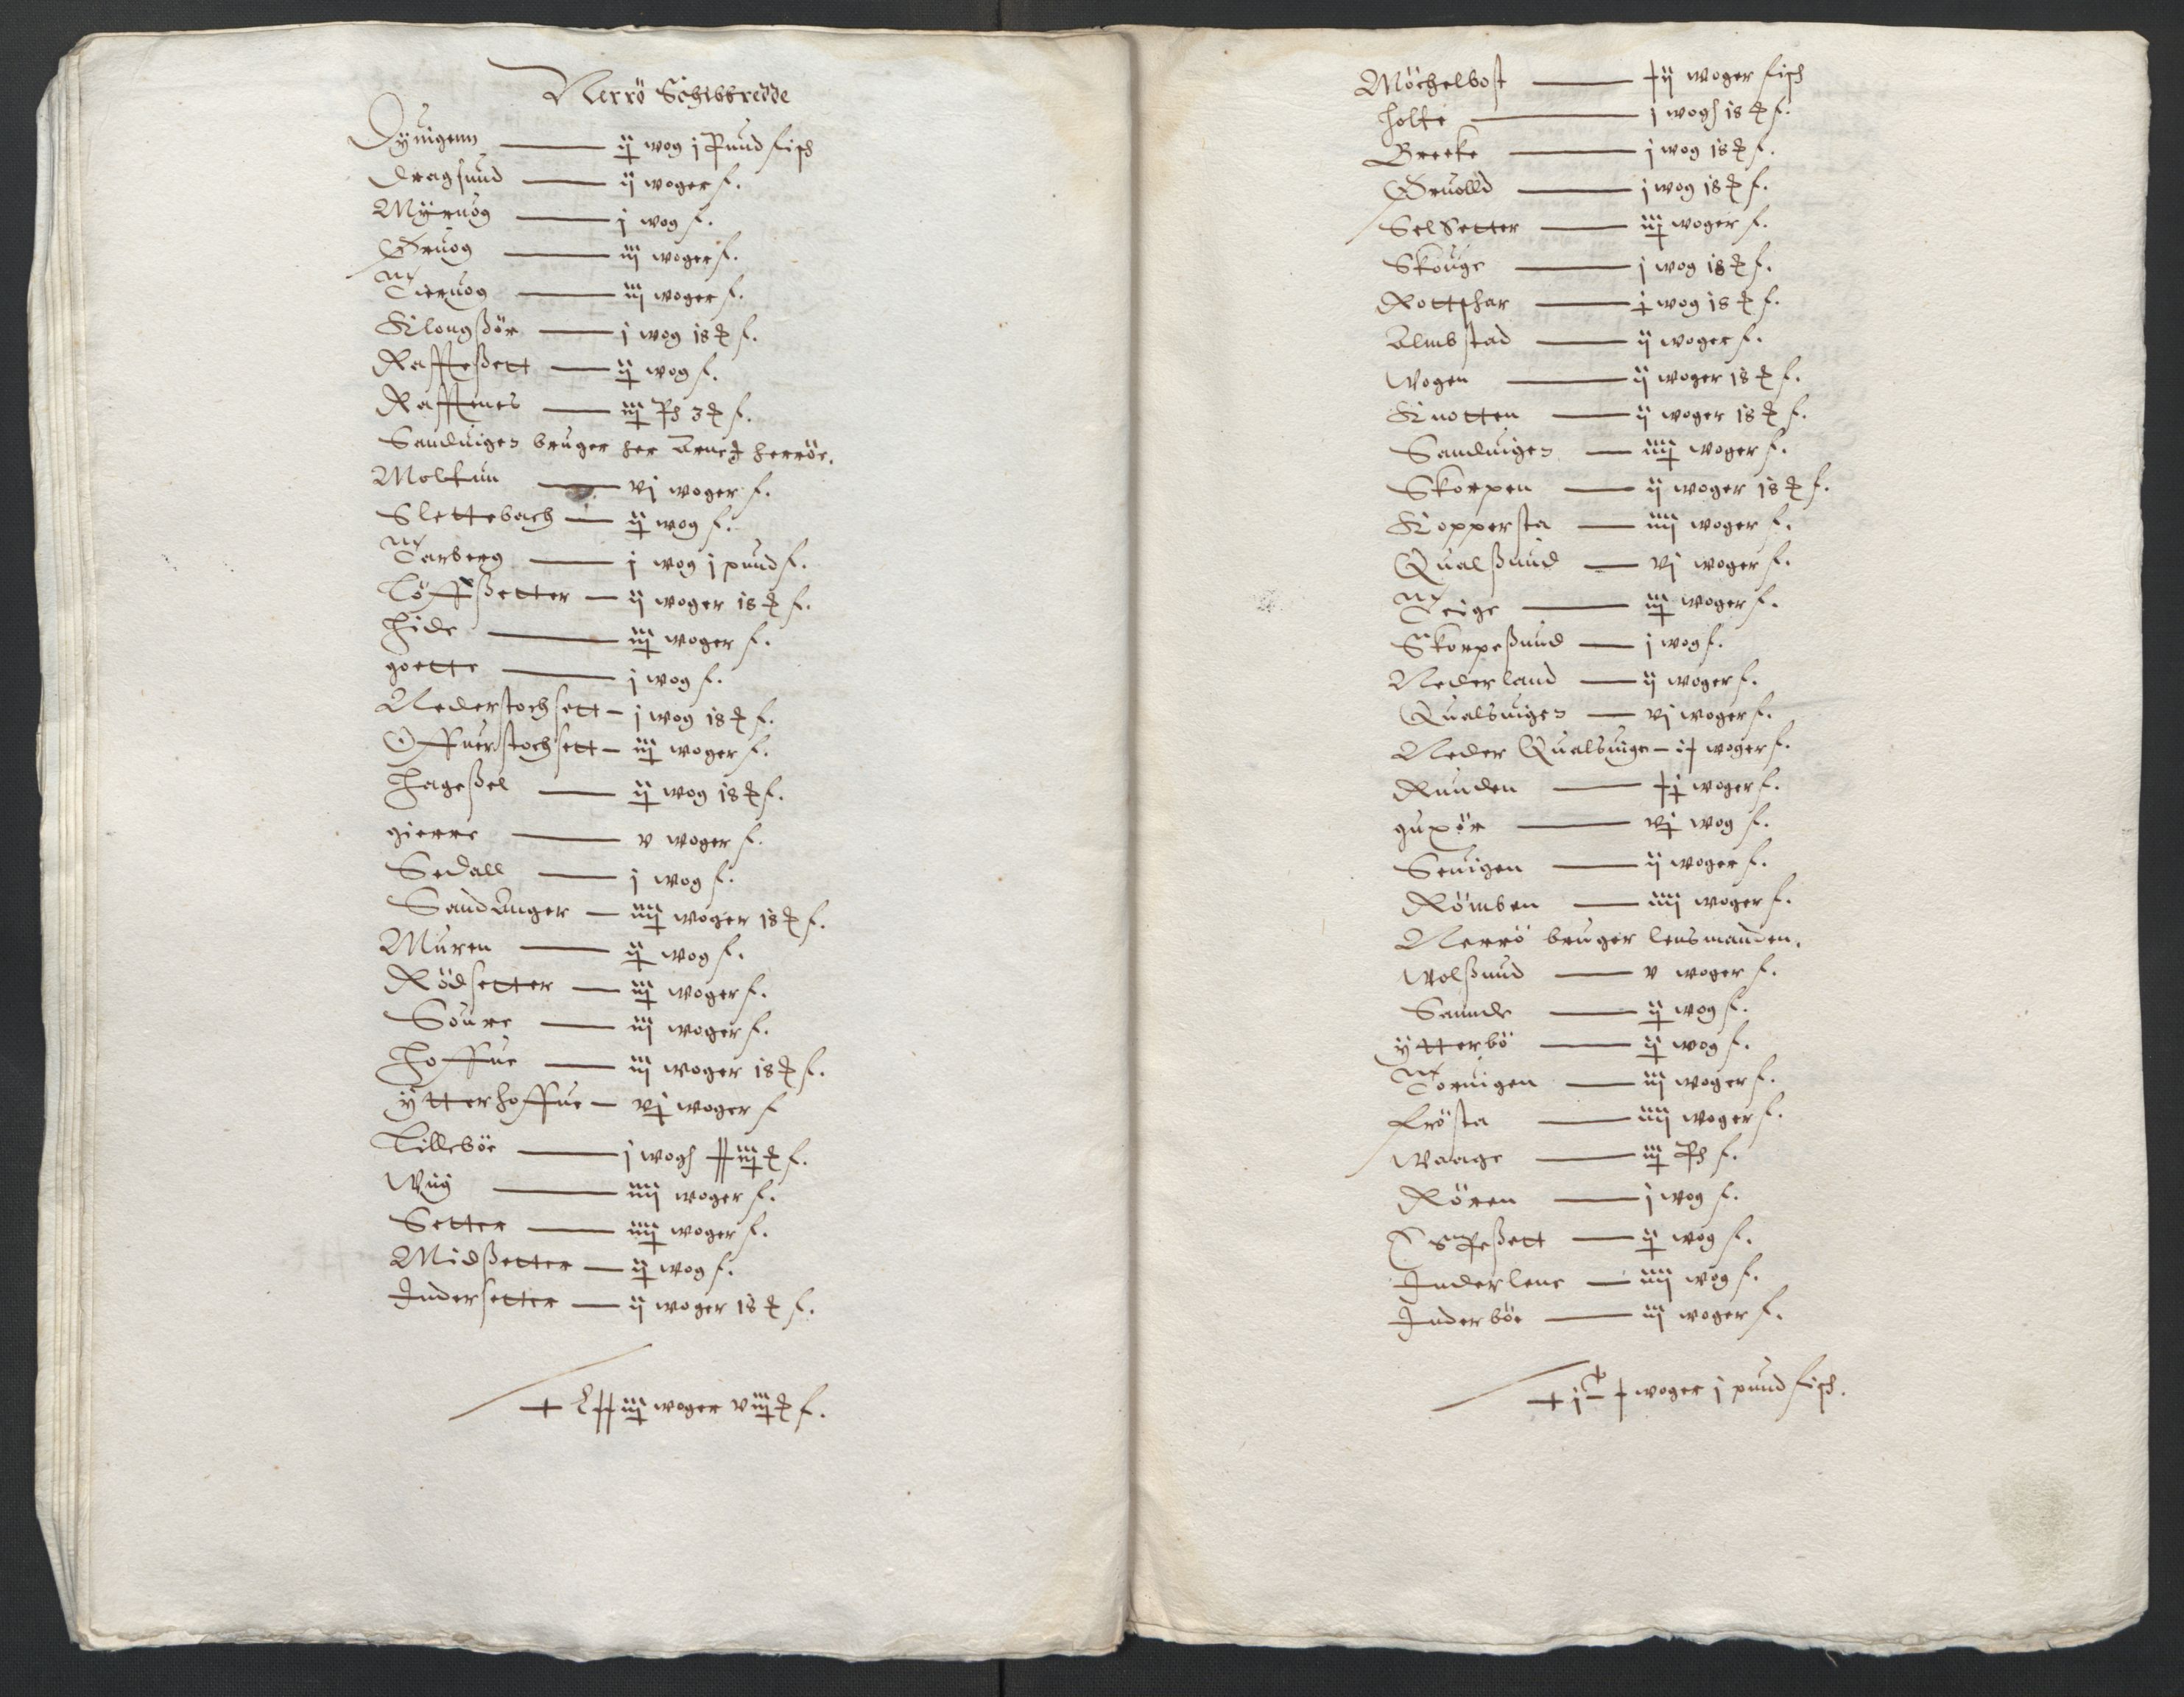 Nerrö Schibbredde
Dyuigenn ij wog j Pund fisch
Dragsund ij woger f.
Myruog j wog f.
Gruog iij woger f.
Tieruog iij woger f.
Klongßör j wog 18 ₰ f.
Raffteßett ij wog f.
Rafftnes iij Pd 3 ₰ f.
Sanduigen bruger her Arne j herröe.
Moltuu vj woger f.
Slettebach ij wog f.
Tarberg j wog j pund f.
Löffßetter ij woger 18 ₰ f.
Hide iij woger f.
goette j wog f.
Nederstochsett j wog 18 ₰ f.
Offuerstochsett iij woger f.
Hageßel ij wog 18 ₰ f.
gierre v woger f.
Sedall j wog f.
Sandanger iiij woger 18 ₰ f.
Muren ij wog f.
Rödsetter iij woger f.
Sours iij woger f.
Hoffue iij woger 18 ₰ f.
ytterhoffue vj woger f
Lilleböe j wog ₰ f.
Wiig iiij woger f.
Setter iiij woger f.
Midßetter ij wog f.
Indersetter ij woger 18 ₰ f.
iij woger viij ₰ f.
Möchelbost ij woger fisch
Holte j wog 18 ₰ f.
Brecke j wog 18 ₰ f.
Gruolld j wog 18 ₰ f.
Selsetter iij woger f.
Skouge j wog 18 ₰ f.
Rottshar j wog 18 ₰ f.
Almbstad ij woger f.
Wogen ij woger 18 ₰ f.
Knotten ij woger 18 ₰ f.
Sanduigen iiij woger f.
Skorpen ij woger 18 ₰ f.
Koppersta iiij woger f.
Qualßund vj woger f.
Teige iij woger f.
Skorpeßund j wog f.
Nederland ij woger f.
Qualsuigen vj woger f.
Neder Qualsuige woger f.
Runden woger f.
guxör vj wog f.
Seuigen ij woger f.
Römben iiij woger f.
Nerrö bruger lensmanden.
Wolßund v woger f.
Saunde ij wog f.
ytterbö ij wog f.
Toruigen iij woger f.
Frösta iiij woger f.
Waage iij Pd f.
Rören j wog f.
Espeßett ij wog f.
Inderlene iiij wog f.
Inderböe iij woger f.
woger j pund fisch.